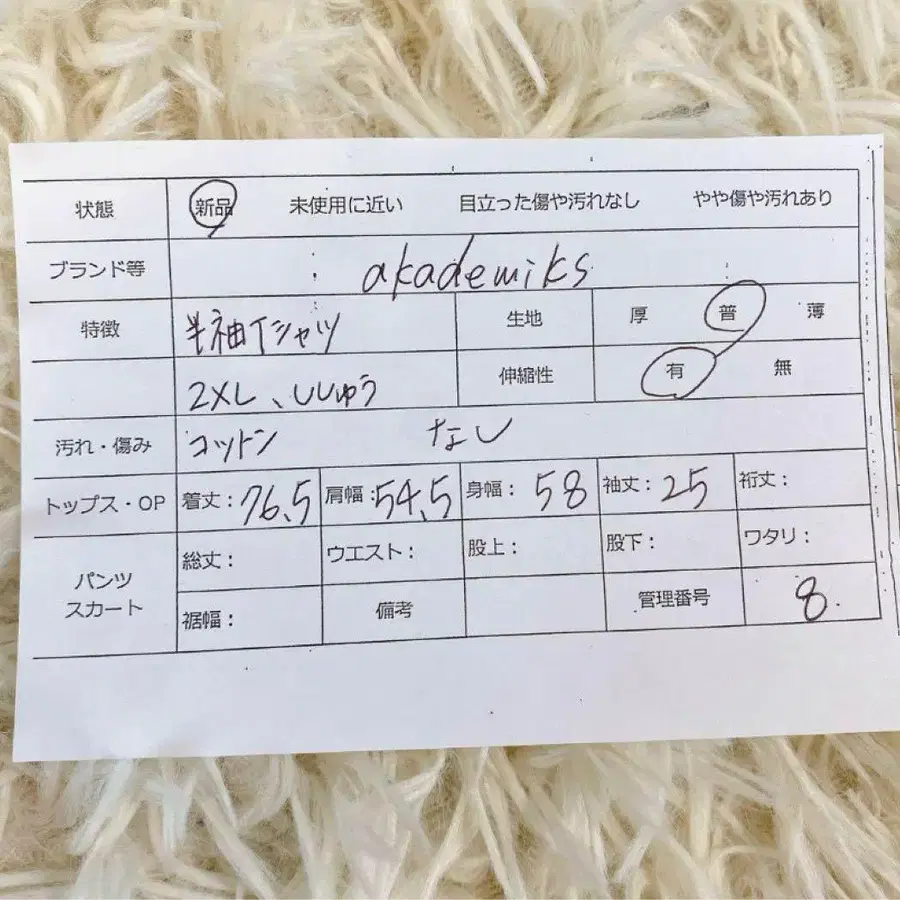 状態 新品 未使用に近い 目立った傷や汚れなし やや傷や汚れあり
ブランド等 akademiks
特徴 半袖Tシャツ 生地 厚 普 薄
2XL、ししゅう 伸縮性 有 無
汚れ・傷み コットン なし
トップス・OP 着丈：76.5 肩幅：54.5 身幅：58 袖丈：25 裄丈：
パンツ スカート 総丈： ウエスト： 股上： 股下： ワタリ：
裾幅： 備考 管理番号 8.